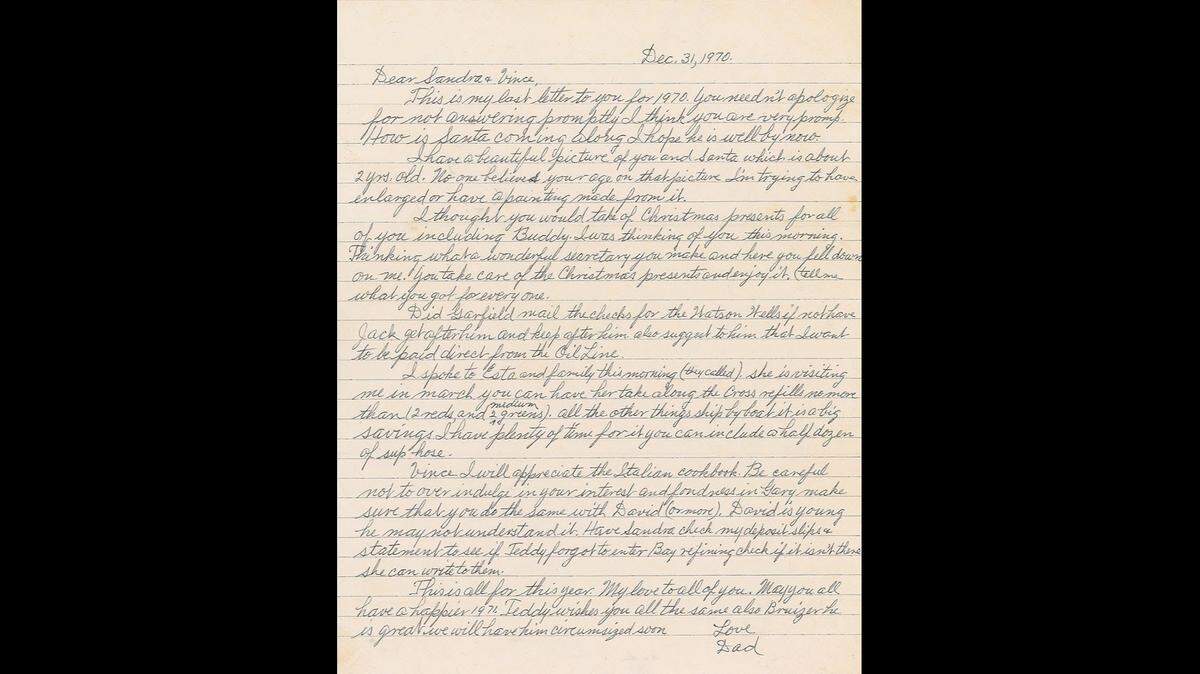 Dec. 31, 1970.
Dear Sandra & Vince,
This is my last letter to you for 1970. You needn't apologize
for not answering promptly I think you are very promp.
How is Santa coming along I hope he is well by now.
I have a beautiful picture of you and Santa which is about
2 yrs. old. No one believes your age on that picture I'm trying to have
enlarged or have a painting made from it.
I thought you would take of Christmas presents for all
of you including Buddy. I was thinking of you this morning.
Thinking what a wonderful secretary you make and here you fell down
on me. You take care of the Christmas presents and enjoy it. (tell me
what you got for every one.
Did Garfield mail the checks for the Watson Wells if not have
Jack get after him and keep after him also suggest to him that I want
to be paid direct from the Oil Line.
I spoke to Esta and family this morning (they called). she is visiting
me in march you can have her take along the Cross refills no more
than (2 reds, and 2 medium greens). all the other things ship by boat it is a big
savings I have plenty of time for it you can include a half dozen
of sup-hose.
Vince I will appreciate the Italian cookbook. Be careful
not to over indulge in your interest and fondness in Gary make
sure that you do the same with David (or more). David is young
he may not understand it. Have Sandra check my deposit slips &
statement to see if Teddy forgot to enter Bay refining check if it isn't there
she can write to them.
This is all for this year. My love to all of you. May you all
have a happier 1971. Teddy wishes you all the same also Bruizer he
is great. we will have him circumsized soon
Love
Dad